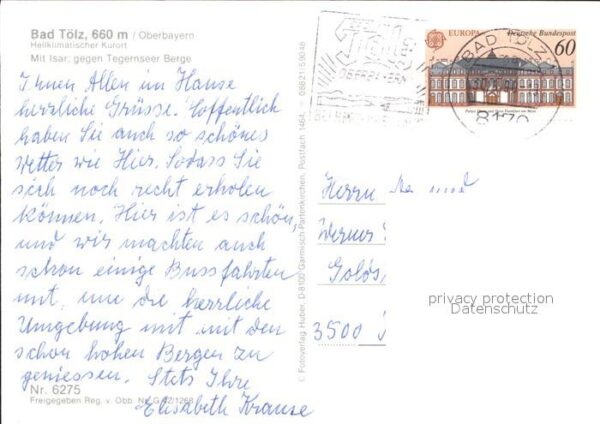 Bad Tölz, 660 m / Oberbayern
Heilklimatischer Kurort
Mit Isar, gegen Tegernseer Berge
Ihnen Allen im Hause
herzliche Grüsse. Hoffentlich
haben Sie auch so schönes
Wetter wie Hier. Sodass Sie
sich noch recht erholen
können. Hier ist es schön,
und wir machten auch
schon einige Bussfahrten
mit, um die herrliche
Umgebung mit mit den
schon hohen Bergen zu
geniessen. Stets Ihre
Elisabeth Krause
Nr. 6275
Freigegeben Reg. v. Obb. Nr. G 42/1268
© Fotoverlag Huber, D-8100 Garmisch-Partenkirchen, Postfach 1464,
OBERBAYERN
EUROPA
Deutsche Bundespost
60
BAD TÖLZ
8170
Herrn
Werner
3500
privacy protection
Datenschutz